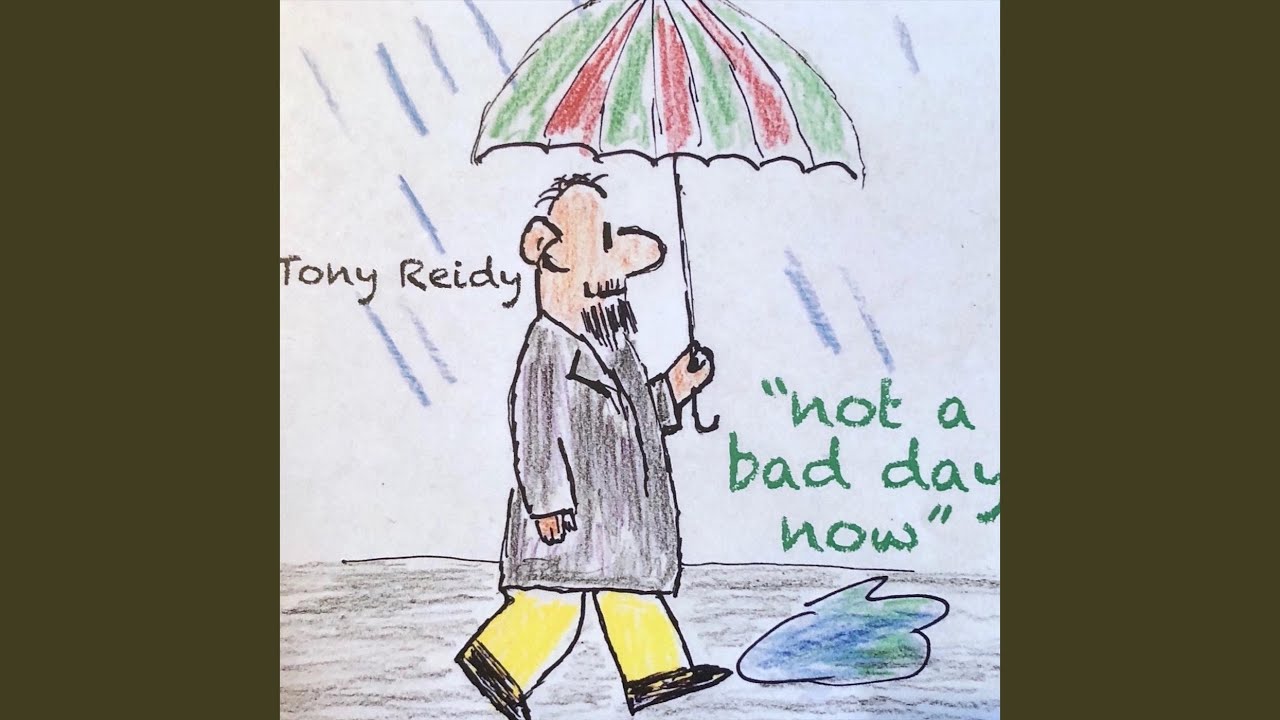 Tony Reidy
"not a
bad day
now"